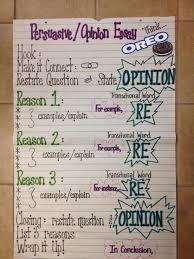 Persuasive/Opinion Essay
Think
OREO
Hook:
Make it Connect:
Restate Question & State OPINION
Reason 1:
Transitional Word
For example,
* examples/explain
RE
*
Reason 2:
Transitional Word
For example,
* examples/explain
RE
*
Reason 3:
Transitional Word
For instance,
* examples/explain
RE
*
Closing: restate question & OPINION
List 3 reasons
Wrap it Up!
In Conclusion,